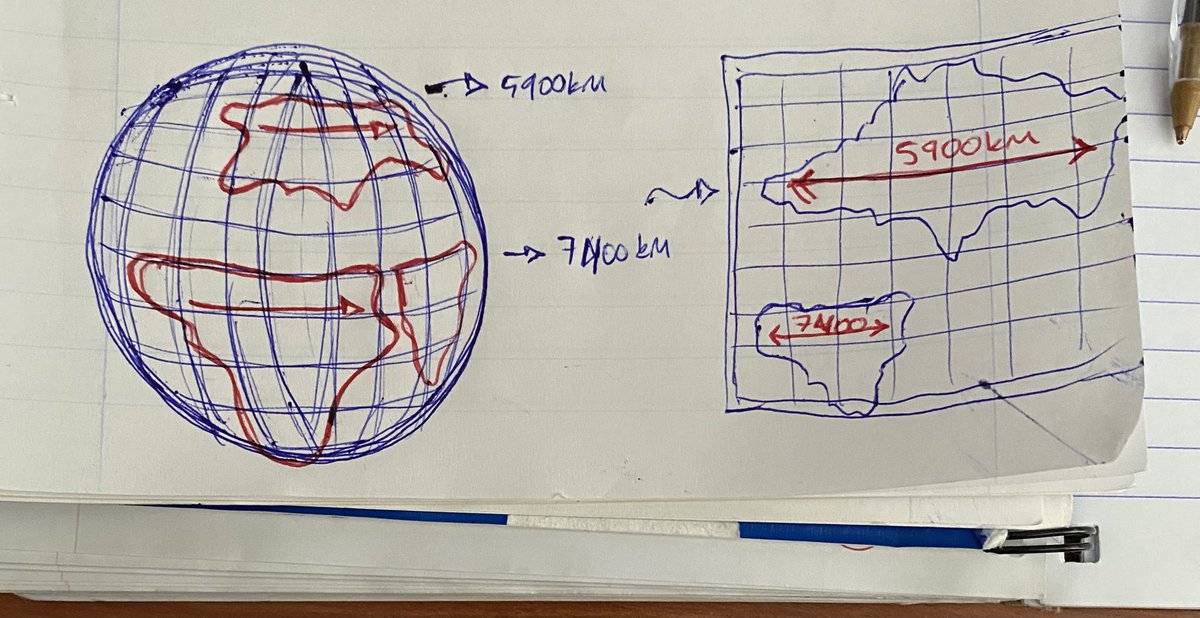 5900km
5900km
7400km
7400